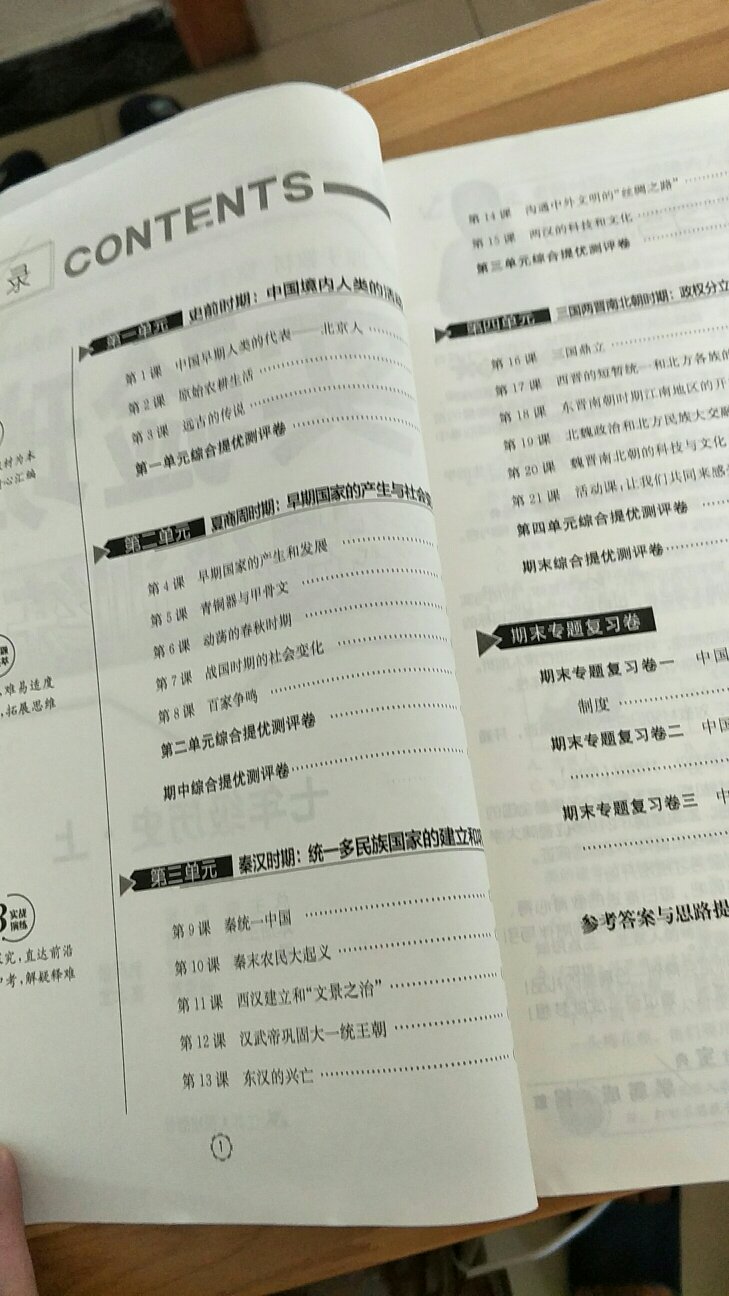 录
CONTENTS
第一单元 史前时期：中国境内人类的活动
第1课 中国早期人类的代表——北京人
第2课 原始农耕生活
第3课 远古的传说
第一单元综合提优测评卷
第二单元 夏商周时期：早期国家的产生与社会变
第4课 早期国家的产生和发展
第5课 青铜器与甲骨文
第6课 动荡的春秋时期
第7课 战国时期的社会变化
第8课 百家争鸣
第二单元综合提优测评卷
期中综合提优测评卷
第三单元 秦汉时期：统一多民族国家的建立和巩
第9课 秦统一中国
第10课 秦末农民大起义
第11课 西汉建立和“文景之治”
第12课 汉武帝巩固大一统王朝
第13课 东汉的兴亡
1
材为本
心汇编
难易适度
，拓展思维
实战
演练
究，直达前沿
考，解疑释难
第14课 沟通中外文明的“丝绸之路”
第15课 两汉的科技和文化
第三单元综合提优测评卷
第四单元 三国两晋南北朝时期：政权分立
第16课 三国鼎立
第17课 西晋的短暂统一和北方各族的
第18课 东晋南朝时期江南地区的开
第19课 北魏政治和北方民族大交融
第20课 魏晋南北朝的科技与文化
第21课 活动课：让我们共同来感
第四单元综合提优测评卷
期末综合提优测评卷
期末专题复习卷
期末专题复习卷一 中国
制度
期末专题复习卷二 中国
期末专题复习卷三 中
参考答案与思路提